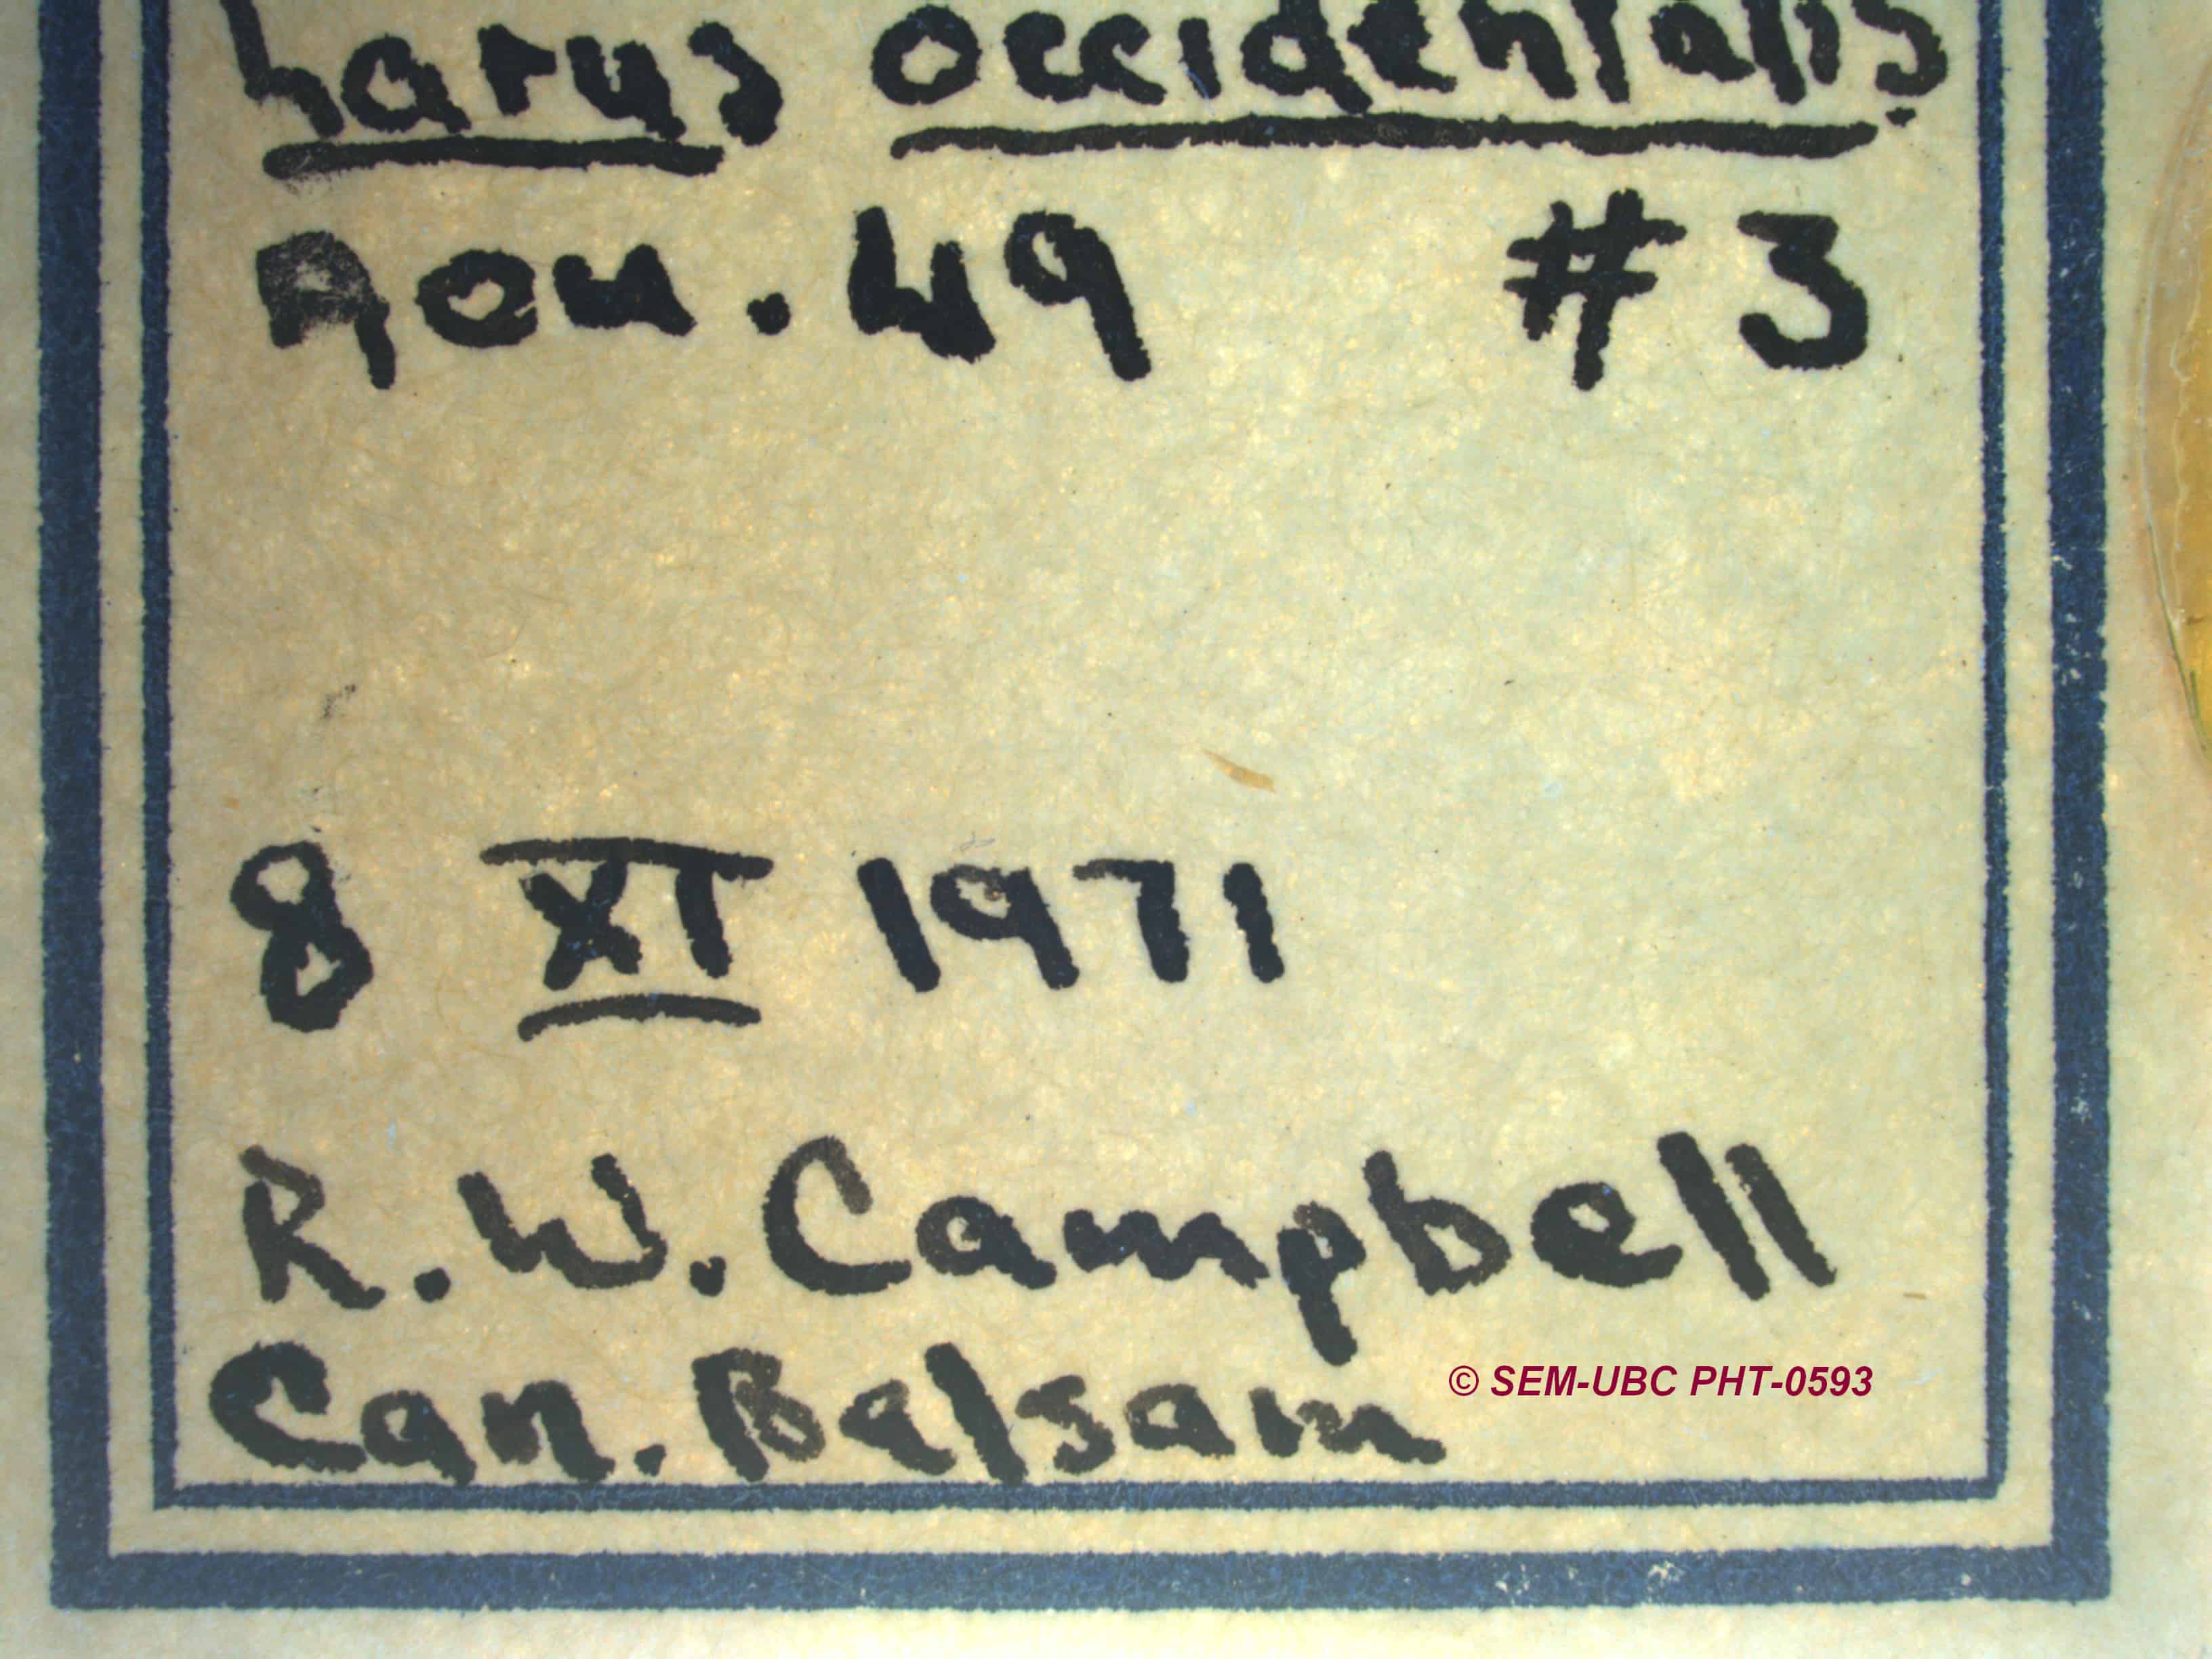 Larus occidentalis
Rou. 49 #3
8 XI 1971
R.W. Campbell
Can. Balsam
© SEM-UBC PHT-0593